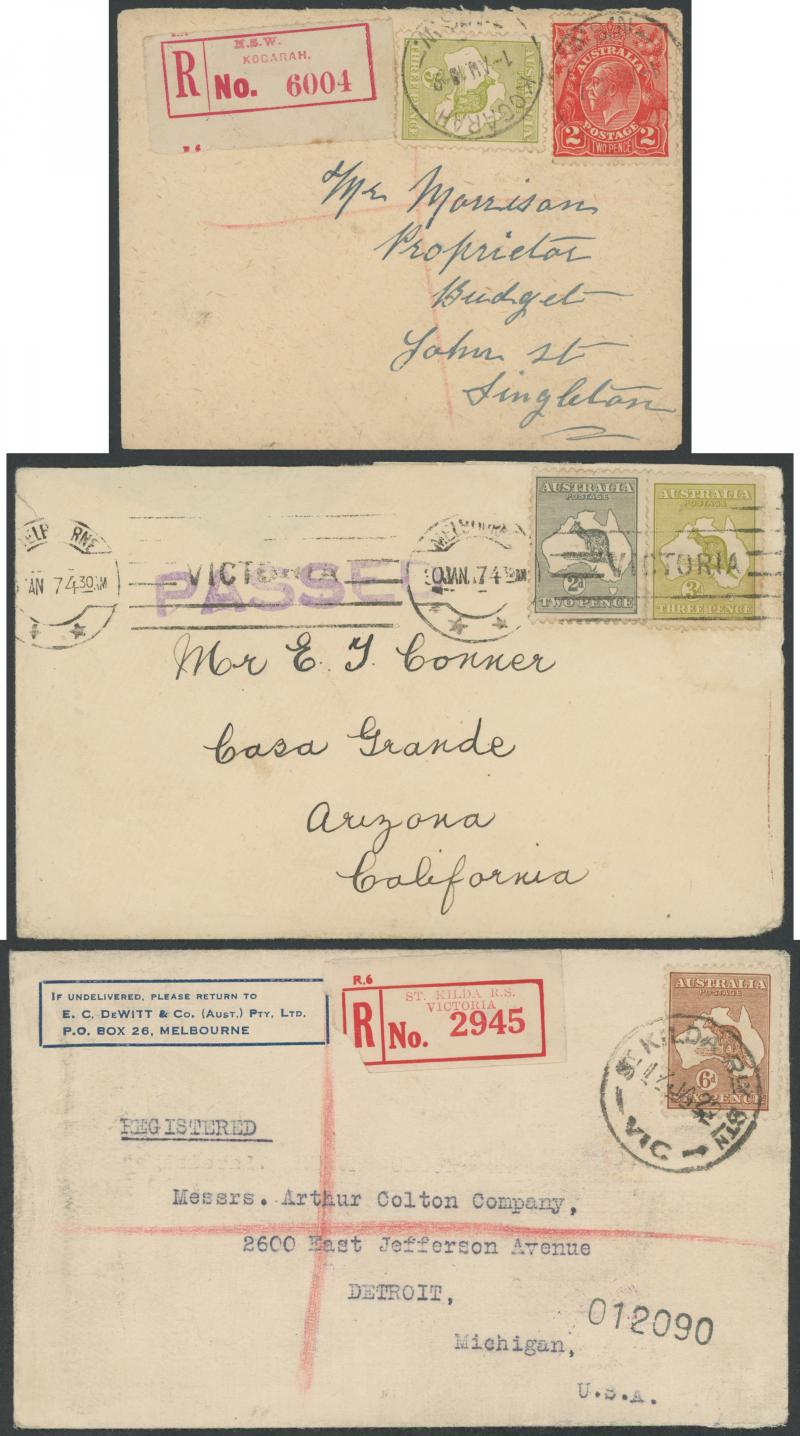 N.S.W.
KOGARAH.
R No. 6004
KOGARAH
N.S.W.
3d
AUSTRALIA
2 POSTAGE 2
TWO PENCE
Mr Morrison
Proprietor
Budget
John St
Singleton
MELBOURNE
VICTORIA
PASSED
MELBOURNE
JAN 17 4 30AM
VICTORIA
AUSTRALIA
POSTAGE
2d
TWO PENCE
AUSTRALIA
POSTAGE
3d
THREE PENCE
Mr E. J. Conner
Casa Grande
Arizona
California
IF UNDELIVERED, PLEASE RETURN TO
E. C. DeWITT & Co. (Aust.) Pty, Ltd.
P.O. BOX 26, MELBOURNE
R.6
ST. KILDA R.S.
VICTORIA
R No. 2945
AUSTRALIA
POSTAGE
6d
SIX PENCE
ST KILDA RLY STN
VIC
REGISTERED
Messrs. Arthur Colton Company,
2600 East Jefferson Avenue
DETROIT,
Michigan,
U.S.A.
012090